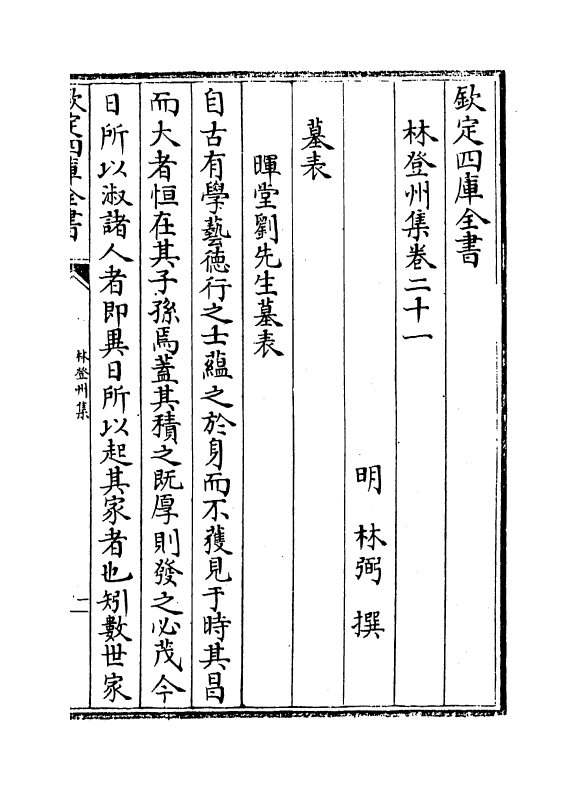 欽定四庫全書
林登州集卷二十一
明 林弼 撰
墓表
暉堂劉先生墓表
自古有學藝德行之士蘊之於身而不獲見于時其昌
而大者恒在其子孫焉蓋其積之既厚則發之必茂今
日所以淑諸人者即異日所以起其家者也矧數世家
欽定四庫全書
林登州集
一